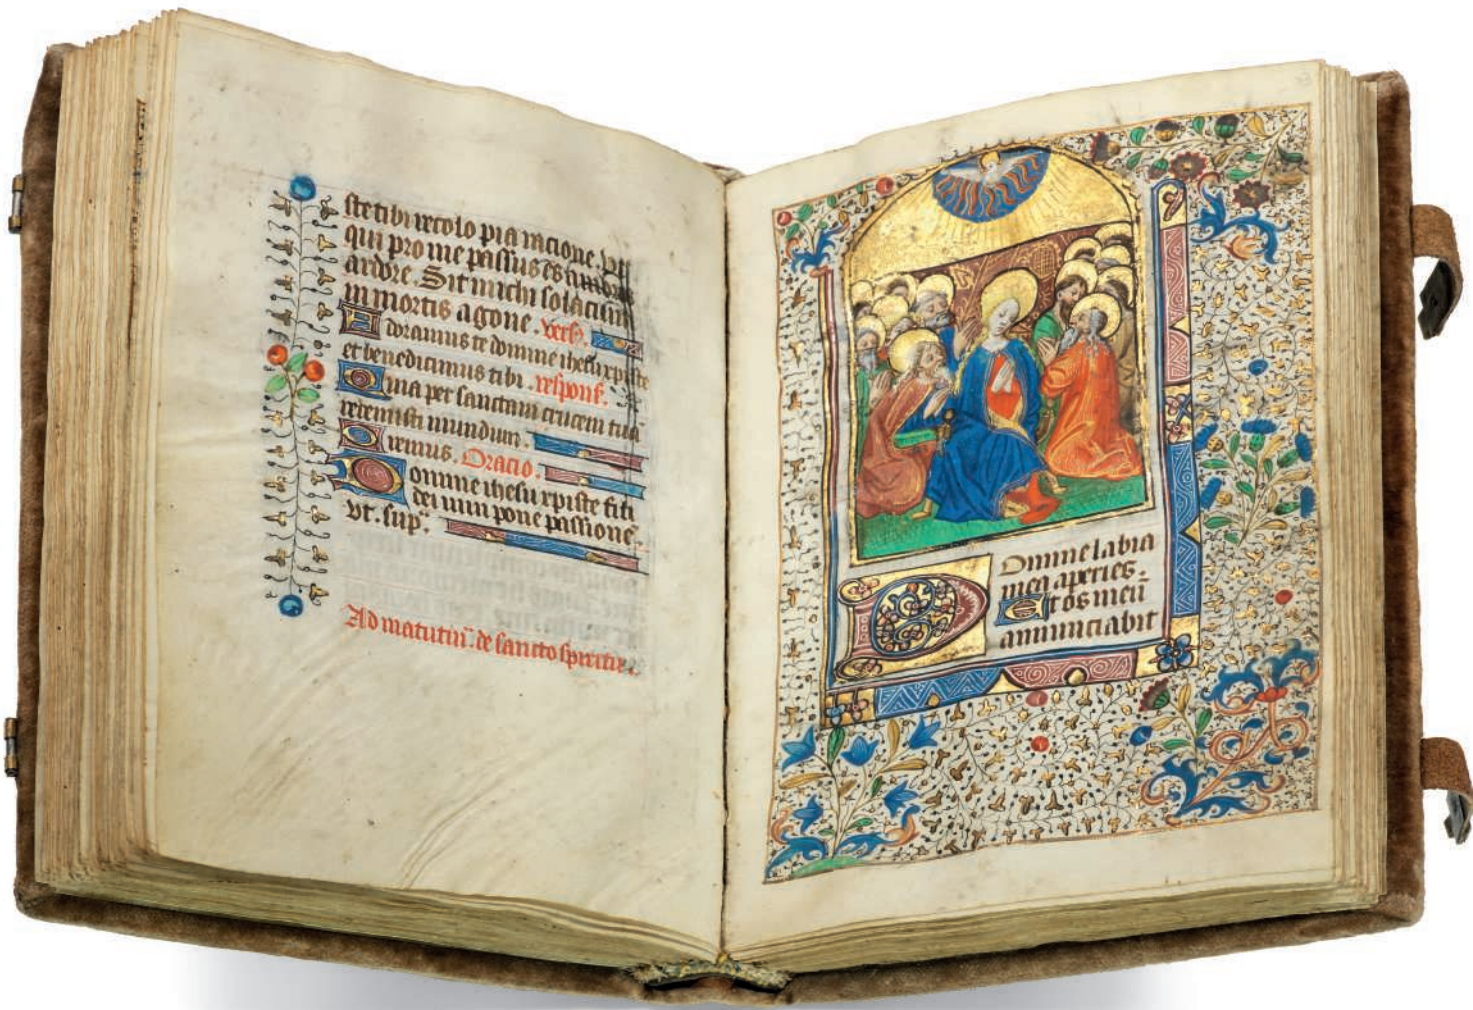 ste tibi recolo pia racione
qui pro me passus es
ardore. Sit michi solacium
in mortis agone. vers.
Adoramus te domine ihesu xpiste
et benedicimus tibi. respons.
Quia per sanctam crucem tua
redemisti mundum.
Oremus. Oracio.
Domine ihesu xpiste fili
dei uiui pone passione.
vt. sup.
Ad matutin. de sancto spiritu.
Domine labia
mea aperies.
Et os meu
annunciabit